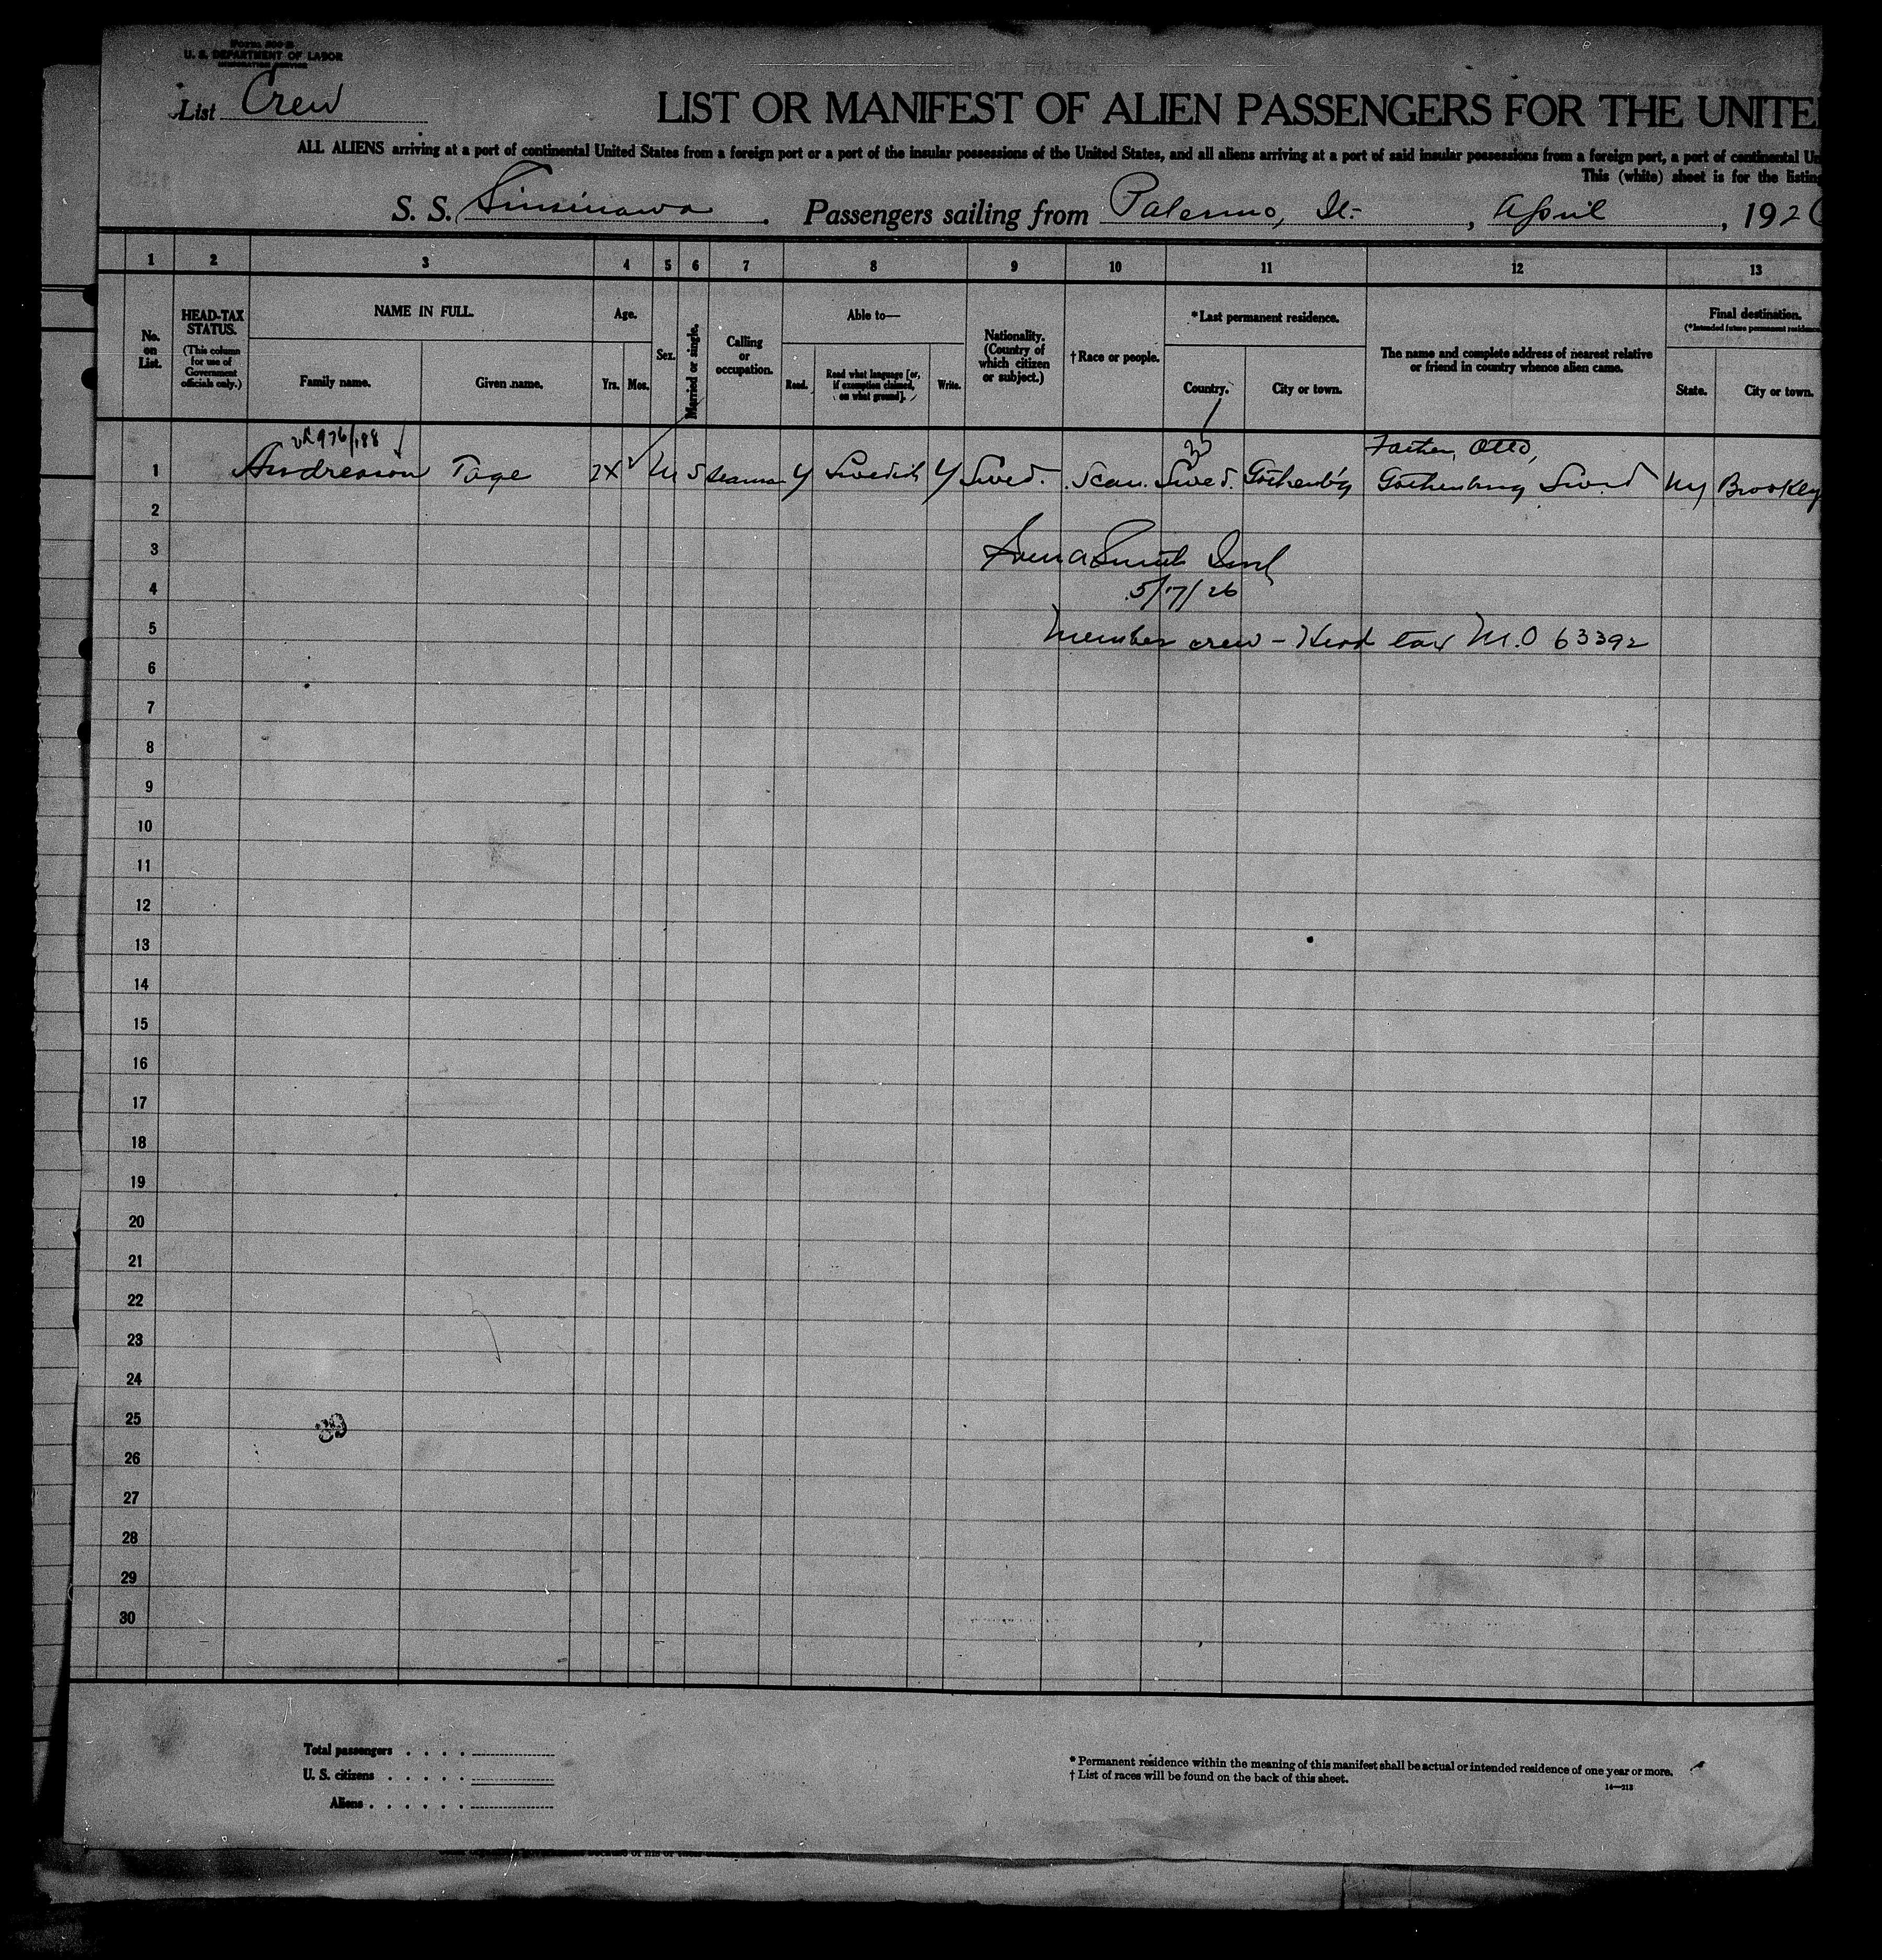 U. S. DEPARTMENT OF LABOR
IMMIGRATION SERVICE
List Crew
LIST OR MANIFEST OF ALIEN PASSENGERS FOR THE UNITE
ALL ALIENS arriving at a port of continental United States from a foreign port or a port of the insular possessions of the United States, and all aliens arriving at a port of said insular possessions from a foreign port, a port of continental Un
This (white) sheet is for the listing
S. S. Sinsinawa. Passengers sailing from Palermo, It., April, 192
1 2 3 4 5 6 7 8 9 10 11 12 13
No. on List.
HEAD-TAX STATUS.
(This column for use of Government officials only.)
NAME IN FULL.
Family name. Given name.
Age.
Yrs. Mos.
Sex.
Married or single.
Calling or occupation.
Able to—
Read. Read what language [or, if exemption claimed, on what ground]. Write.
Nationality. (Country of which citizen or subject.)
† Race or people.
*Last permanent residence.
Country. City or town.
The name and complete address of nearest relative or friend in country whence alien came.
Final destination.
(*Intended future permanent residence
State. City or town.
Father, Otto,
1 Andreason Tage M S seaman y Swedish y Swed. Scan. Swed. Gothenb'g Gothenburg Swed NY Brookly
2
3
4
5/7/26
5
Member crew - Head tax M.O 63392
6
7
8
9
10
11
12
13
14
15
16
17
18
19
20
21
22
23
24
25
26
27
28
29
30
Total passengers . . . .
U. S. citizens . . . . .
Aliens . . . . . .
* Permanent residence within the meaning of this manifest shall be actual or intended residence of one year or more.
† List of races will be found on the back of this sheet.
14—213